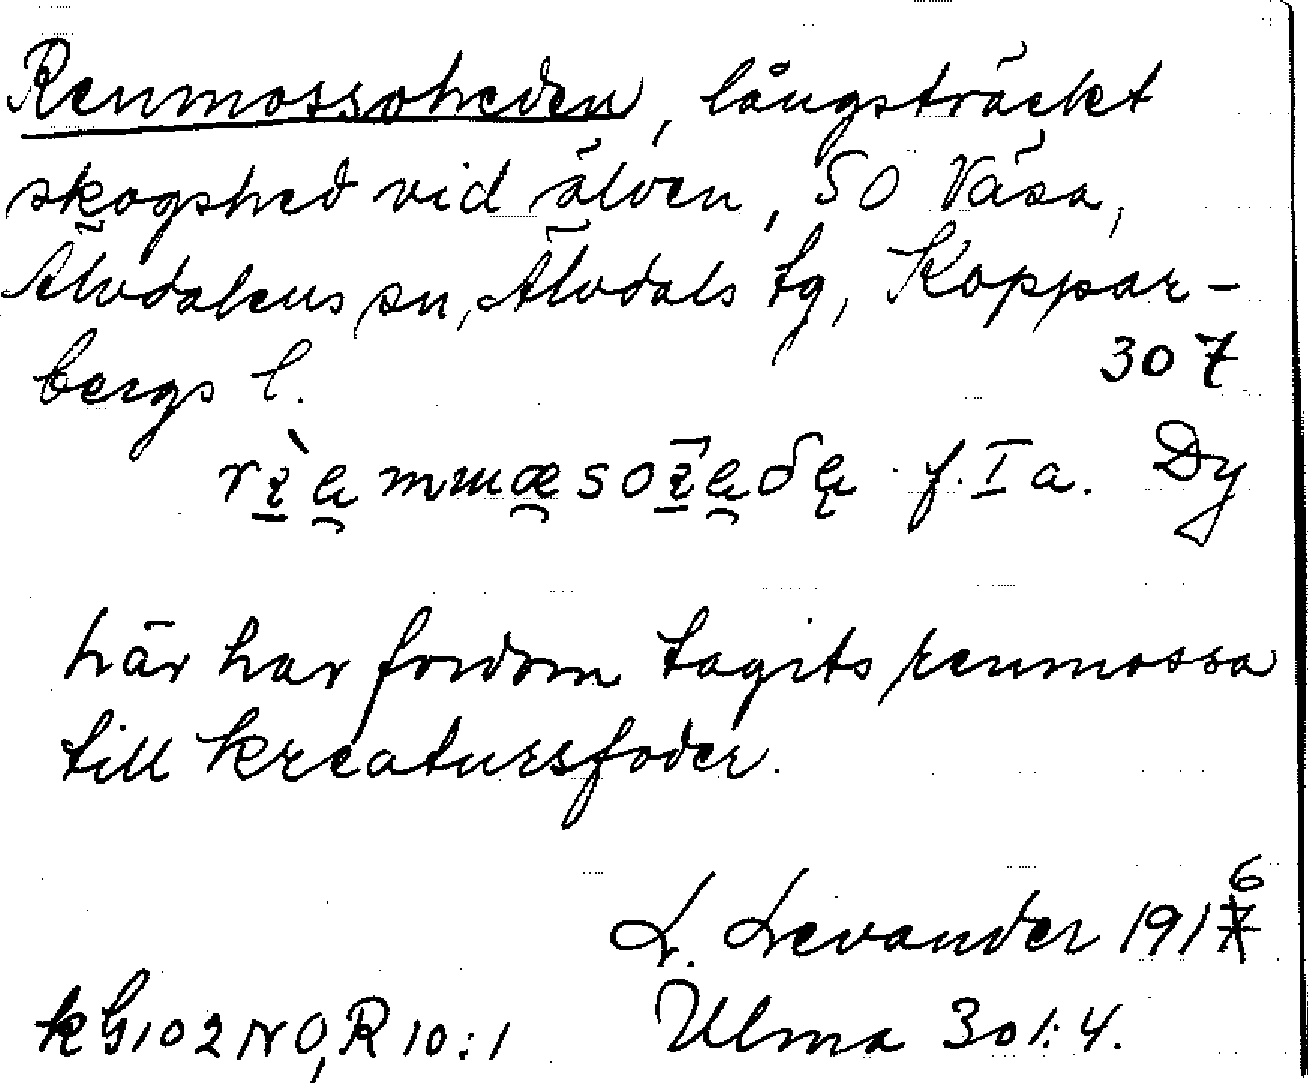 Renmossoheden, långsträckt
skogshed vid älven, SO Väsa,
Älvdalens sn, Älvdals tg, Koppar-
bergs l.
307
f. I a. Dy
här har fordom tagits renmossa
till kreatursfoder.
L. Levander 1916
kG102NO, R10:1 Ulma 301:4.